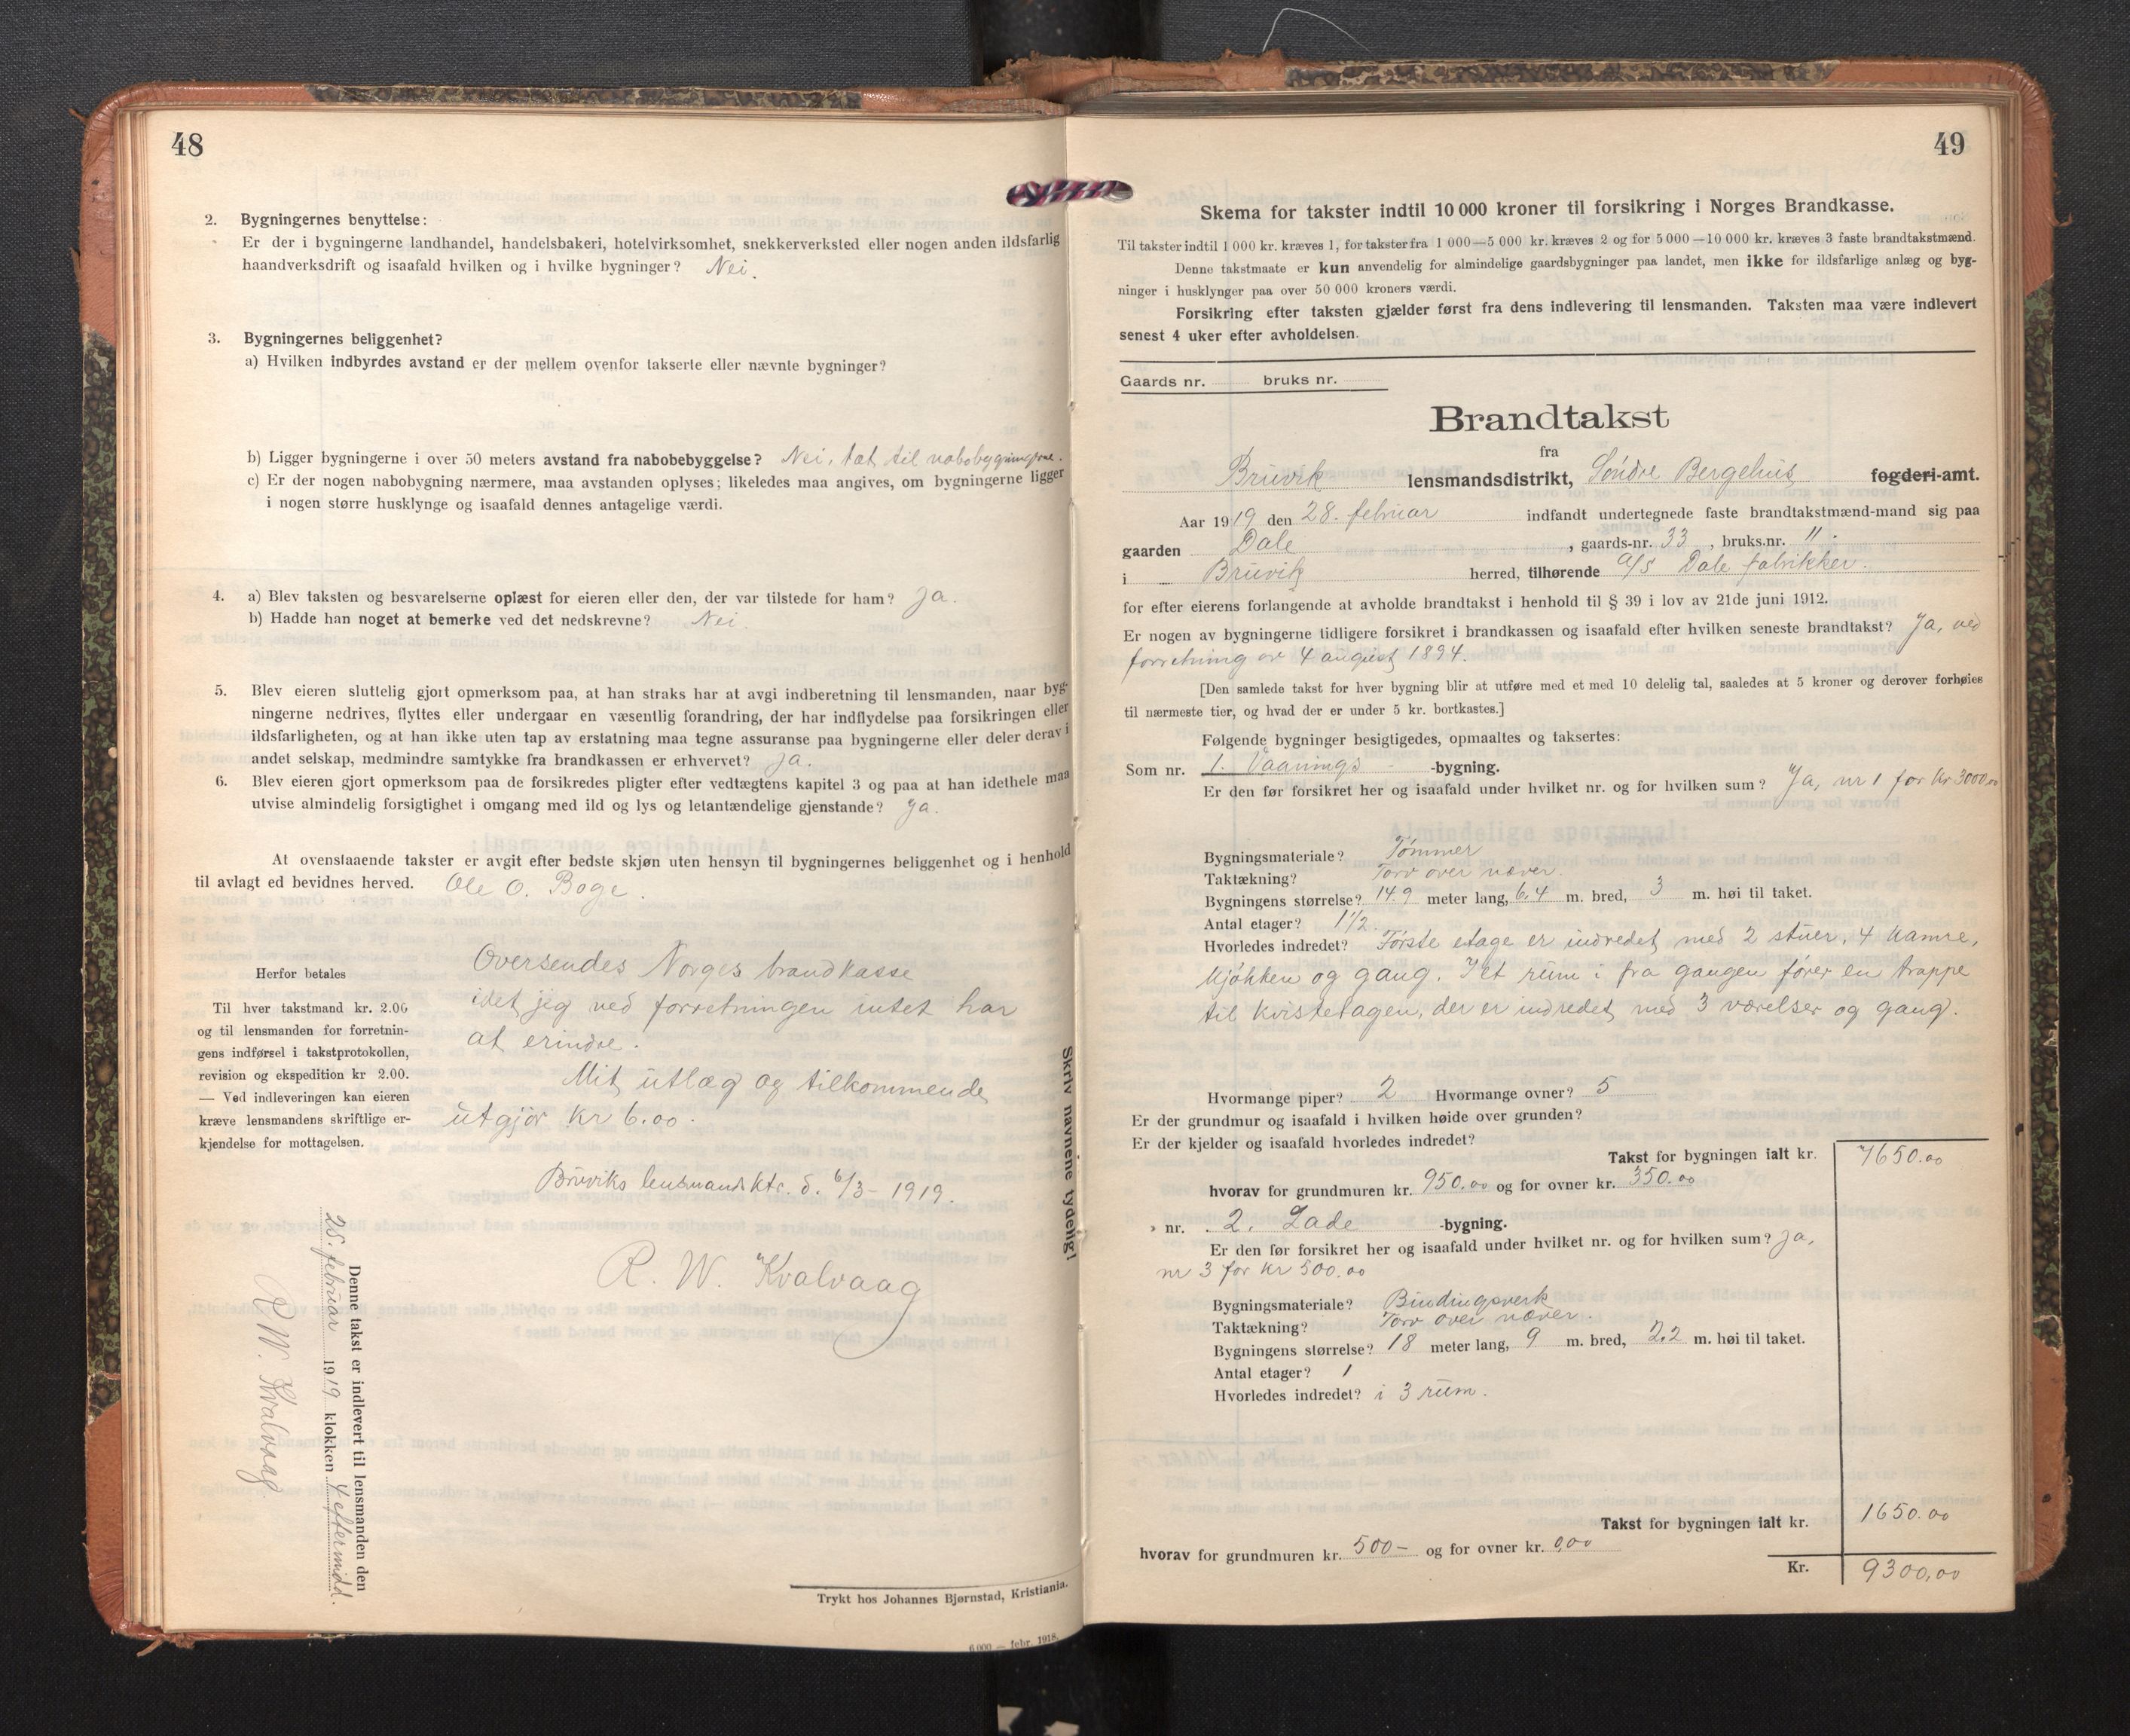 48
2. Bygningernes benyttelse:
Er der i bygningerne landhandel, handelsbakeri, hotelvirksomhet, snekkerverksted eller nogen anden ildsfarlig
haandverksdrift og isaafald hvilken og i hvilke bygninger? Nei.
3. Bygningernes beliggenhet?
a) Hvilken indbyrdes avstand er der mellem ovenfor takserte eller nævnte bygninger?
b) Ligger bygningerne i over 50 meters avstand fra nabobebyggelse? Nei, tæt til nabobygningerne.
c) Er der nogen nabobygning nærmere, maa avstanden oplyses; likeledes maa angives, om bygningerne ligger
i nogen større husklynge og isaafald dennes antagelige værdi.
4. a) Blev taksten og besvarelserne oplæst for eieren eller den, der var tilstede for ham? Ja.
b) Hadde han noget at bemerke ved det nedskrevne? Nei.
5. Blev eieren sluttelig gjort opmerksom paa, at han straks har at avgi indberetning til lensmanden, naar byg-
ningerne nedrives, flyttes eller undergaar en væsentlig forandring, der har indflydelse paa forsikringen eller
ildsfarligheten, og at han ikke uten tap av erstatning maa tegne assuranse paa bygningerne eller deler derav i
andet selskap, medmindre samtykke fra brandkassen er erhvervet? Ja.
6. Blev eieren gjort opmerksom paa de forsikredes pligter efter vedtægtens kapitel 3 og paa at han idethele maa
utvise almindelig forsigtighet i omgang med ild og lys og letantændelige gjenstande? Ja.
At ovenstaaende takster er avgit efter bedste skjøn uten hensyn til bygningernes beliggenhet og i henhold
til avlagt ed bevidnes herved. Ole O. Boge.
Herfor betales
Til hver takstmand kr. 2.00
og til lensmanden for forretnin-
gens indførsel i takstprotokollen,
revision og ekspedition kr 2.00.
— Ved indleveringen kan eieren
kræve lensmandens skriftlige er-
kjendelse for mottagelsen.
Oversendes Norges brandkasse
idet jeg ved forretningen intet har
at erindre.
Mit utlæg og tilkommende
utgjør kr 6.00.
Bruviks lensmandsktr. d. 6/3-1919.
R. W. Kvalvaag
Denne takst er indlevert til lensmanden den
28. februar 1919 klokken 4 eftermidd.
R W. Kvalvaag.
Skriv navnene tydelig!
Trykt hos Johannes Bjørnstad, Kristiania.
6 000 — febr. 1918.
49
Skema for takster indtil 10 000 kroner til forsikring i Norges Brandkasse.
Til takster indtil 1 000 kr. kræves 1, for takster fra 1 000—5 000 kr. kræves 2 og for 5 000—10 000 kr. kræves 3 faste brandtakstmænd.
Denne takstmaate er kun anvendelig for almindelige gaardsbygninger paa landet, men ikke for ildsfarlige anlæg og byg-
ninger i husklynger paa over 50 000 kroners værdi.
Forsikring efter taksten gjælder først fra dens indlevering til lensmanden. Taksten maa være indlevert
senest 4 uker efter avholdelsen.
Gaards nr. bruks nr.
Brandtakst
fra
Bruvik lensmandsdistrikt, Søndre Bergehus fogderi-amt.
Aar 1919 den 28. februar indfandt undertegnede faste brandtakstmænd-mand sig paa
gaarden Dale, gaards-nr. 33, bruks.nr. "
i Bruvik herred, tilhørende A/S Dale fabrikker.
for efter eierens forlangende at avholde brandtakst i henhold til § 39 i lov av 21de juni 1912.
Er nogen av bygningerne tidligere forsikret i brandkassen og isaafald efter hvilken seneste brandtakst? Ja, ved
forretning av 4 august 1894.
[Den samlede takst for hver bygning blir at utføre med et med 10 delelig tal, saaledes at 5 kroner og derover forhøies
til nærmeste tier, og hvad der er under 5 kr. bortkastes.]
Følgende bygninger besigtigedes, opmaaltes og taksertes:
Som nr. 1. Vaanings -bygning.
Er den før forsikret her og isaafald under hvilket nr. og for hvilken sum? Ja, nr 1 for kr 3000,00
Bygningsmateriale? Tømmer
Taktækning? Torv over næver.
Bygningens størrelse? 14.9 meter lang, 6.4 m. bred, 3 m. høi til taket.
Antal etager? 1 1/2.
Hvorledes indredet? Første etage er indredet med 2 stuer, 4 kamre,
kjøkken og gang. I et rum i fra gangen fører en trappe
til kvistetagen, der er indredet med 3 værelser og gang.
Hvormange piper? 2 Hvormange ovner? 5
Er der grundmur og isaafald i hvilken høide over grunden?
Er der kjelder og isaafald hvorledes indredet?
Takst for bygningen ialt kr. 7650.00
hvorav for grundmuren kr. 950.00 og for ovner kr. 350.00
» nr. 2. Lade -bygning.
Er den før forsikret her og isaafald under hvilket nr. og for hvilken sum? Ja,
nr 3 for kr 500.00
Bygningsmateriale? Bindingsverk
Taktækning? Torv over næver.
Bygningens størrelse? 18 meter lang, 9 m. bred, 2.2 m. høi til taket.
Antal etager? 1
Hvorledes indredet? i 3 rum.
Takst for bygningen ialt kr. 1650.00
hvorav for grundmuren kr. 500- og for ovner kr. 0,00
Kr. 9300,00